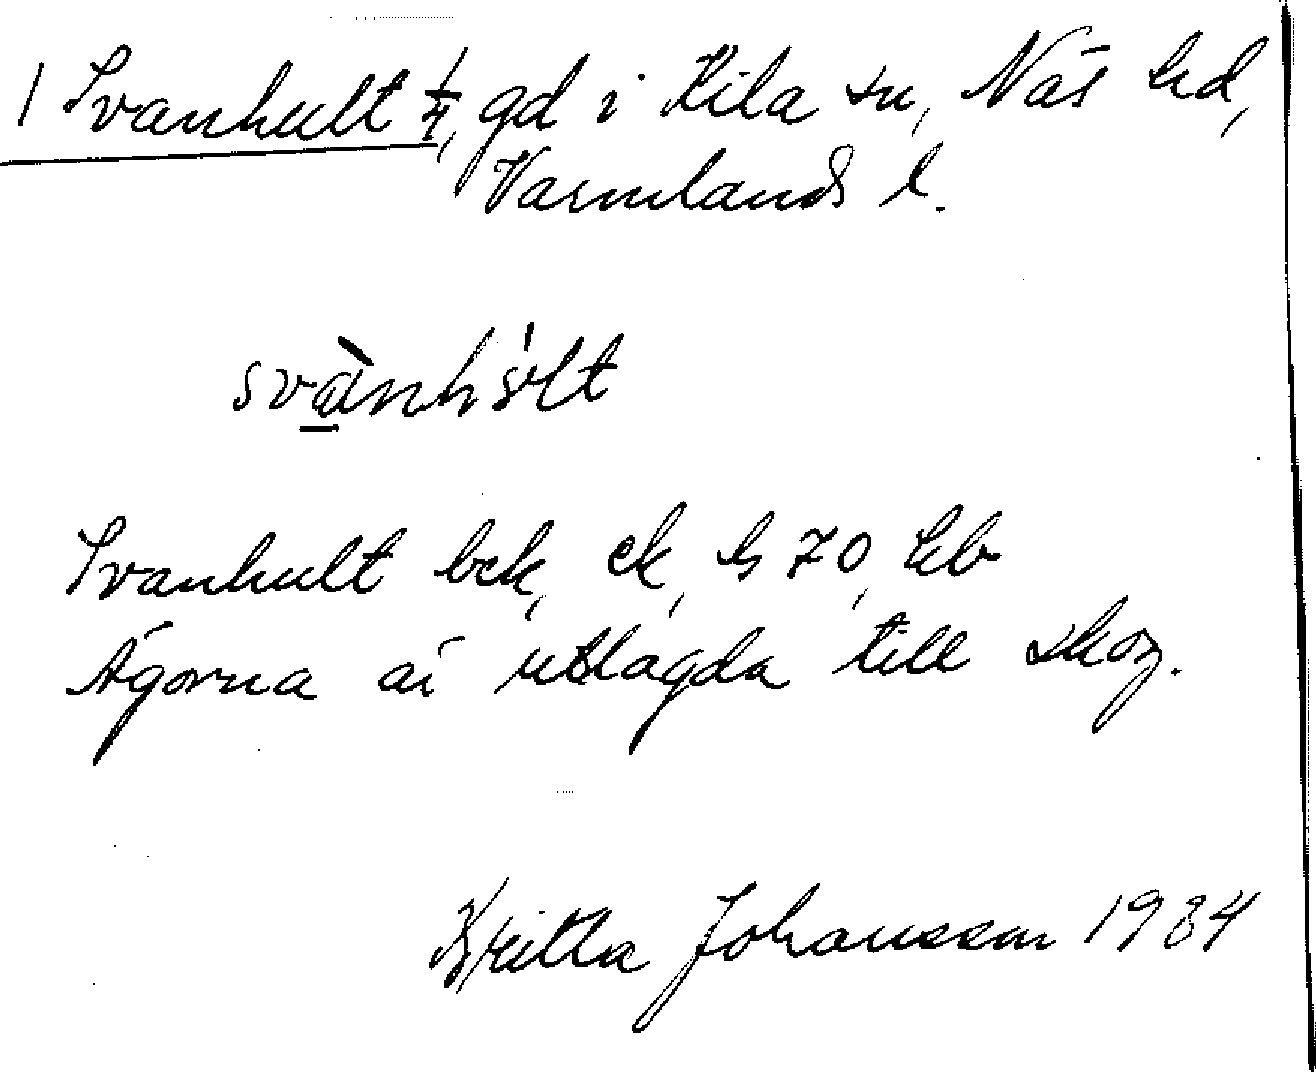 1 Svanhult 1/4, gd i Kila sn, Näs hd,
Värmlands l.
svànhúlt
Svanhult bek, ek, bs 70, hb
Ägorna är utlagda till skog.
Britta Johansson 1984